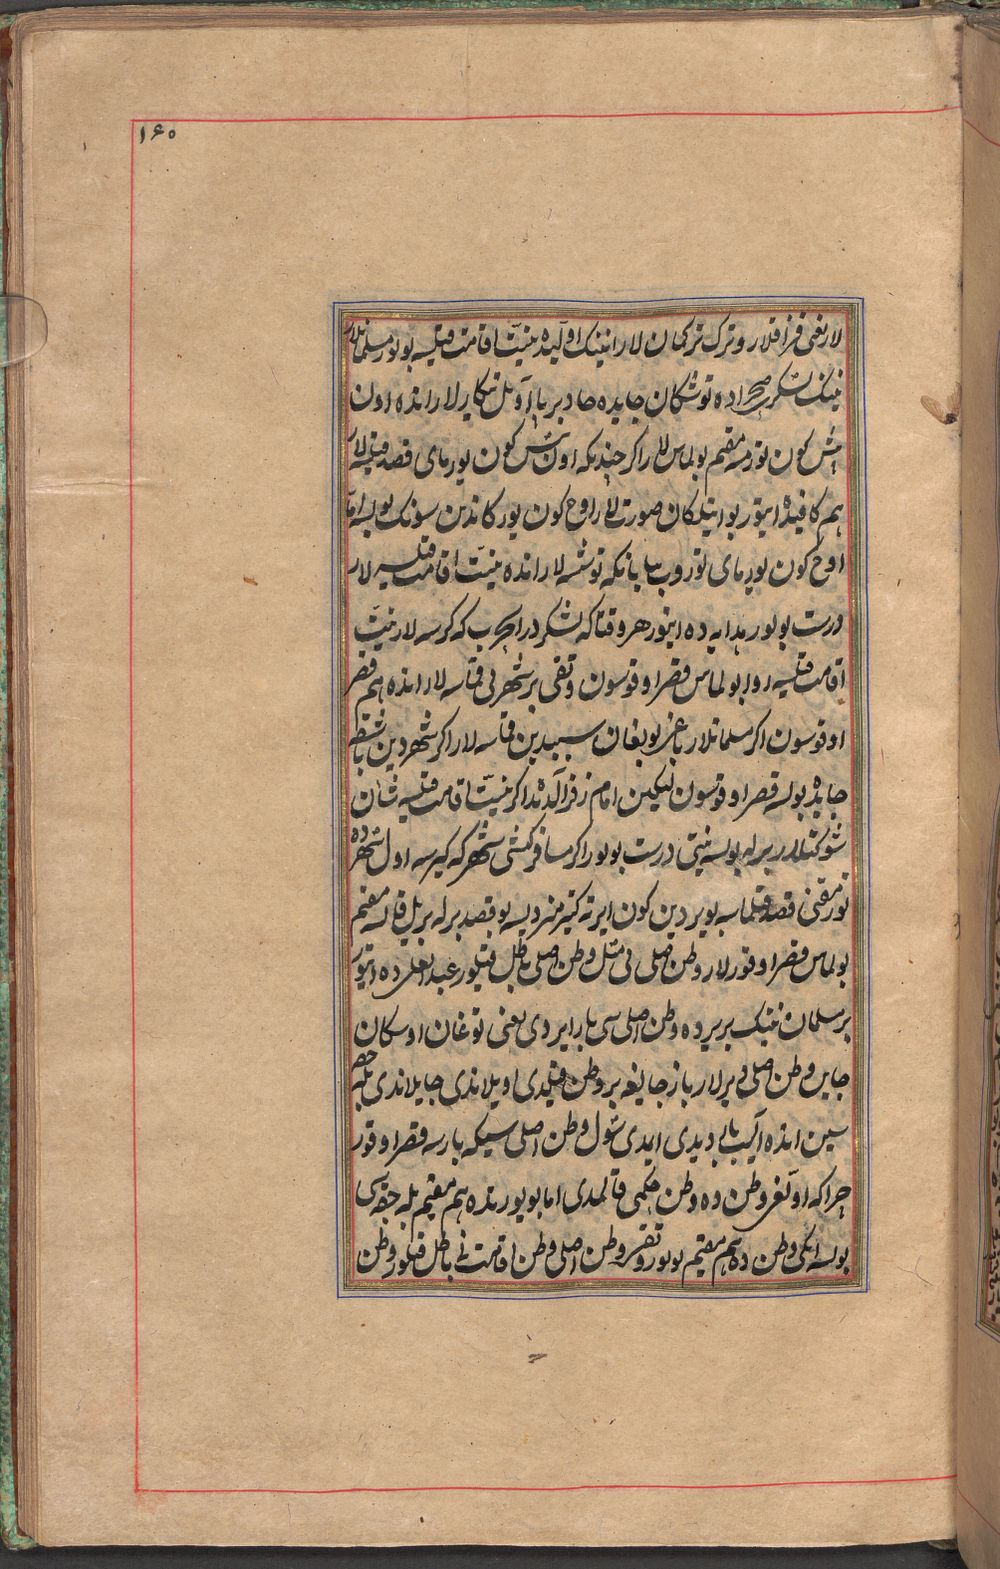 ۱۶۰
لارنغی قزاقلار و ترک ترکمان لارانینک اوییده نیت اقامت قیلسه بولور مسلمانلار
نینک لشکری صحراده توشکان جایده چادر بریا آویل تیکارلار اراندە اون
بیش کون تورسه مقیم بولماس لار اکرچندیکه اون بیش کون یورمای قصد قیلسه لار
هم کافیده ایتور بو ایتلکان صورت لار اوچ کون یورکاندین سونک بولسه اما
اوچ کون یورمای توروب بیابانکه توشسه لار انده نیت اقامت قیلسه لار
درست بولور هدایه ده ایتور هر وقتاکه لشکر دار الحرب که کرسه لار نیت
اقامت قیلسه روا بولماس قصر اوقوسون و تقی بر شهر نی قماسه لار انده هم قصر
اوقوسون اکر مسلمانلار باغی بولغان سببدین قماسه لار اکر شهردین باشقه
جایده بولسه قصر اوقوسون لیکین امام زفر آلدیدا اکر نیت اقامت قیلسه شان
شوکتلار برله بولسه نیتی درست بولور اکر مسافر کشی شهرکه کیرسه اول شهرده
تورمقنی قصد قیلماسه بو یردین کون ایرته کتیرمن دیسه بو قصد برله بر ییل قالسه مقیم
بولماس قصر اوقور لار وطن اصلی نی مثل وطن اصلی باطل قیلور عبد العلی ده ایتور
بر مسلمان نینک بر یرده وطن اصلی سی بار ایردی یعنی توغان اوسکان
جاین وطن اصلی دیرلار باز جایغه بر وطن قیلدی اویلاندی جایلاندی بله
سین انده الیب باردی ایدی شول وطن اصلی سیکه بارسه قصر اوقور
چراکه اولغی وطن ده وطن حکمی قالمدی اما بو یورتده هم مقیم بله جفتی سی
بولسه ایکی وطن ده هم مقیم بولور و تقی وطن اصلی وطن اقامت نی باطل قیلور وطن